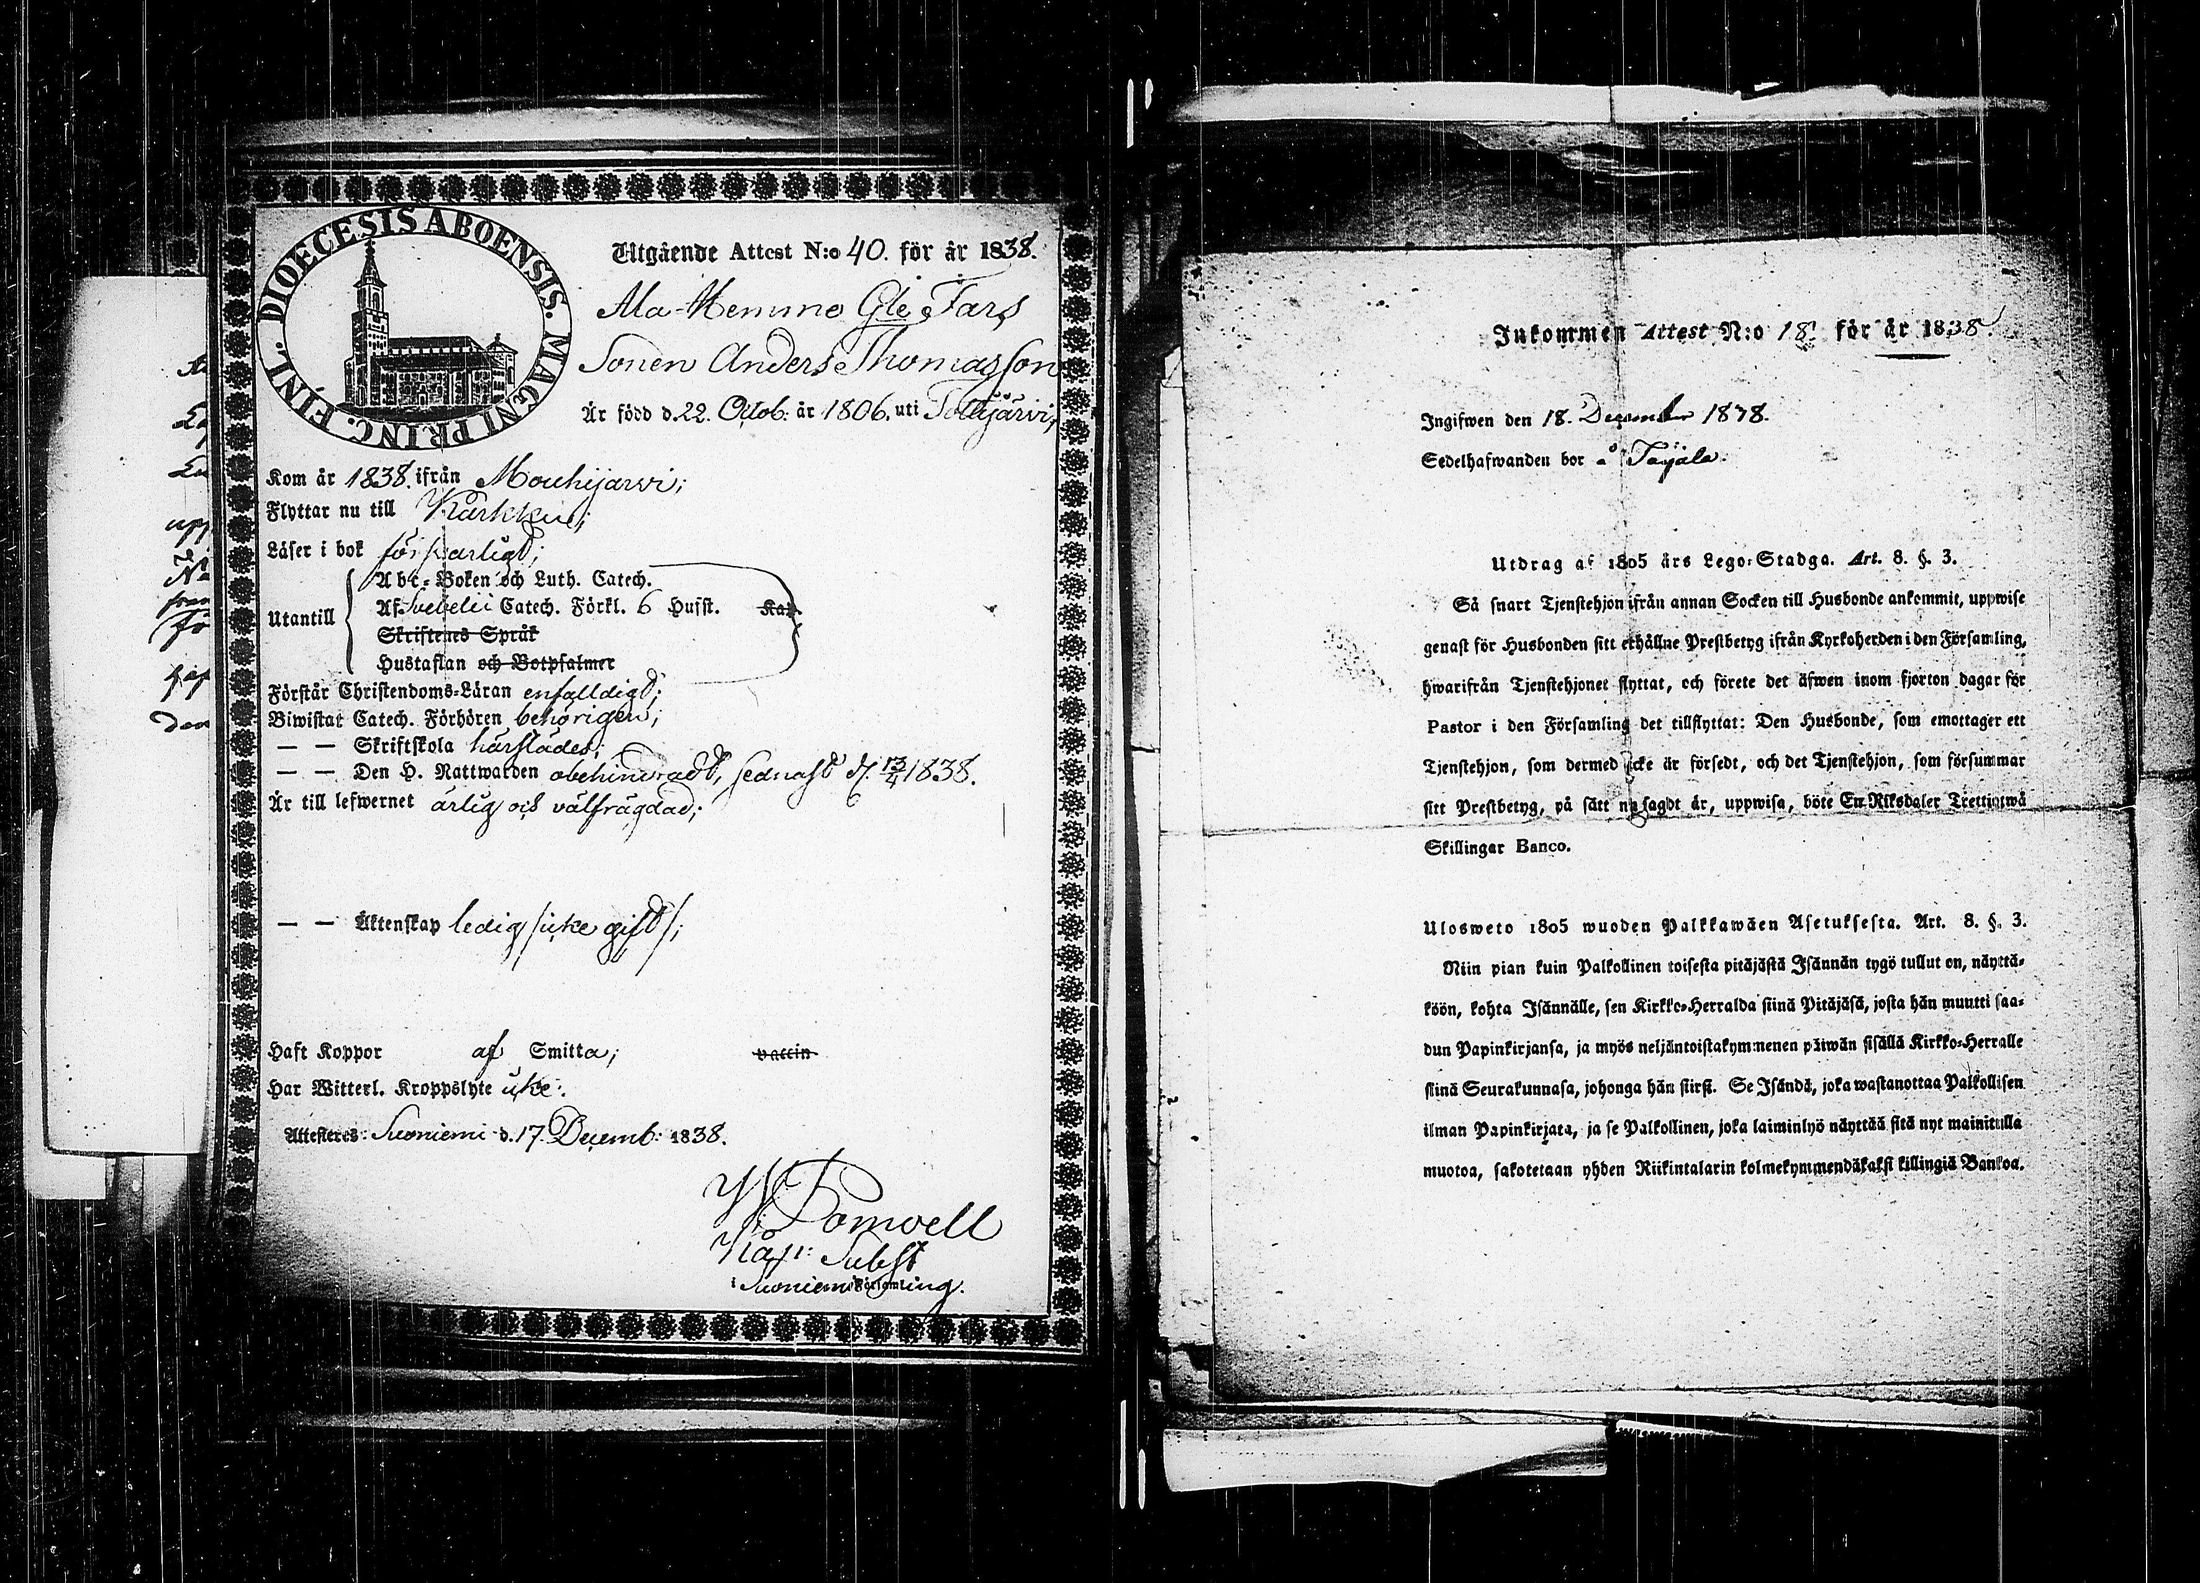 DIOECESIS ABOENSIS. MAGNI PRINC. FINL.
Utgående Attest N:o 40. för år 1838.
Ala-Memmo Gle Fars
Sonen Anders Thomasson
Är född d. 22. Octob: år 1806. uti
Kom år 1838. ifrån Mouhijärvi;
Flyttar nu till Karkku;
Läser i bok försvarligt;
Utantill
Abc-Boken och Luth. Catech.
Af Svebelii Catech. Förkl. 6 Hufst. Kap.
Skriftenes Språk
Hustaflan och Botpsalmer
Förstår Christendoms-Läran enfalldigt;
Biwistat Catech. Förhören behörigen;
— — Skriftskola härstädes;
— — Den H. Nattwarden obehindradt, sednast d. 13/4 1838.
Är till lefwernet ärlig och välfrägdad;
— — Äktenskap ledig /icke gift/;
Haft Koppor af Smitta; vaccin
Har Witterl. Kroppslyte icke.
Attesteres: Suoniemi d. 17. Decemb: 1838.
Kap: Subst
i Suoniemi Församling.
Inkommen Attest N:o 18. för år 1838
Ingifwen den 18. December 1838.
Sedelhafwanden bor å
Utdrag af 1805 års Lego-Stadga. Art. 8. §. 3.
Så snart Tjenstehjon ifrån annan Socken till Husbonde ankommit, uppwise
genast för Husbonden sitt erhållne Prestbetyg ifrån Kyrkoherden i den Församling,
hwarifrån Tjenstehjonet flyttat, och förete det äfwen inom fjorton dagar för
Pastor i den Församling det tillflyttat: Den Husbonde, som emottager ett
Tjenstehjon, som dermed icke är försedt, och det Tjenstehjon, som försummar
sitt Prestbetyg, på sätt nu sagdt är, uppwisa, böte En Riksdaler Trettiotwå
Skillingar Banco.
Ulosweto 1805 wuoden Palkkawäen Asetuksesta. Art. 8. §. 3.
Niin pian kuin Palkollinen toisesta pitäjästä Isännän tygö tullut on, näyttä-
köön, kohta Isännälle, sen Kirkko-Herralda siinä Pitäjäsä, josta hän muutti saa-
dun Papinkirjansa, ja myös neljäntoistakymmenen päiwän sisällä Kirkko-Herralle
siinä Seurakunnasa, johonga hän siirsi. Se Isändä, joka wastanottaa Palkollisen
ilman Papinkirjata, ja se Palkollinen, joka laiminlyö näyttää sitä nyt mainitulla
muotoa, sakotetaan yhden Riikintalarin kolmekymmendäkaksi killingiä Bankoa.